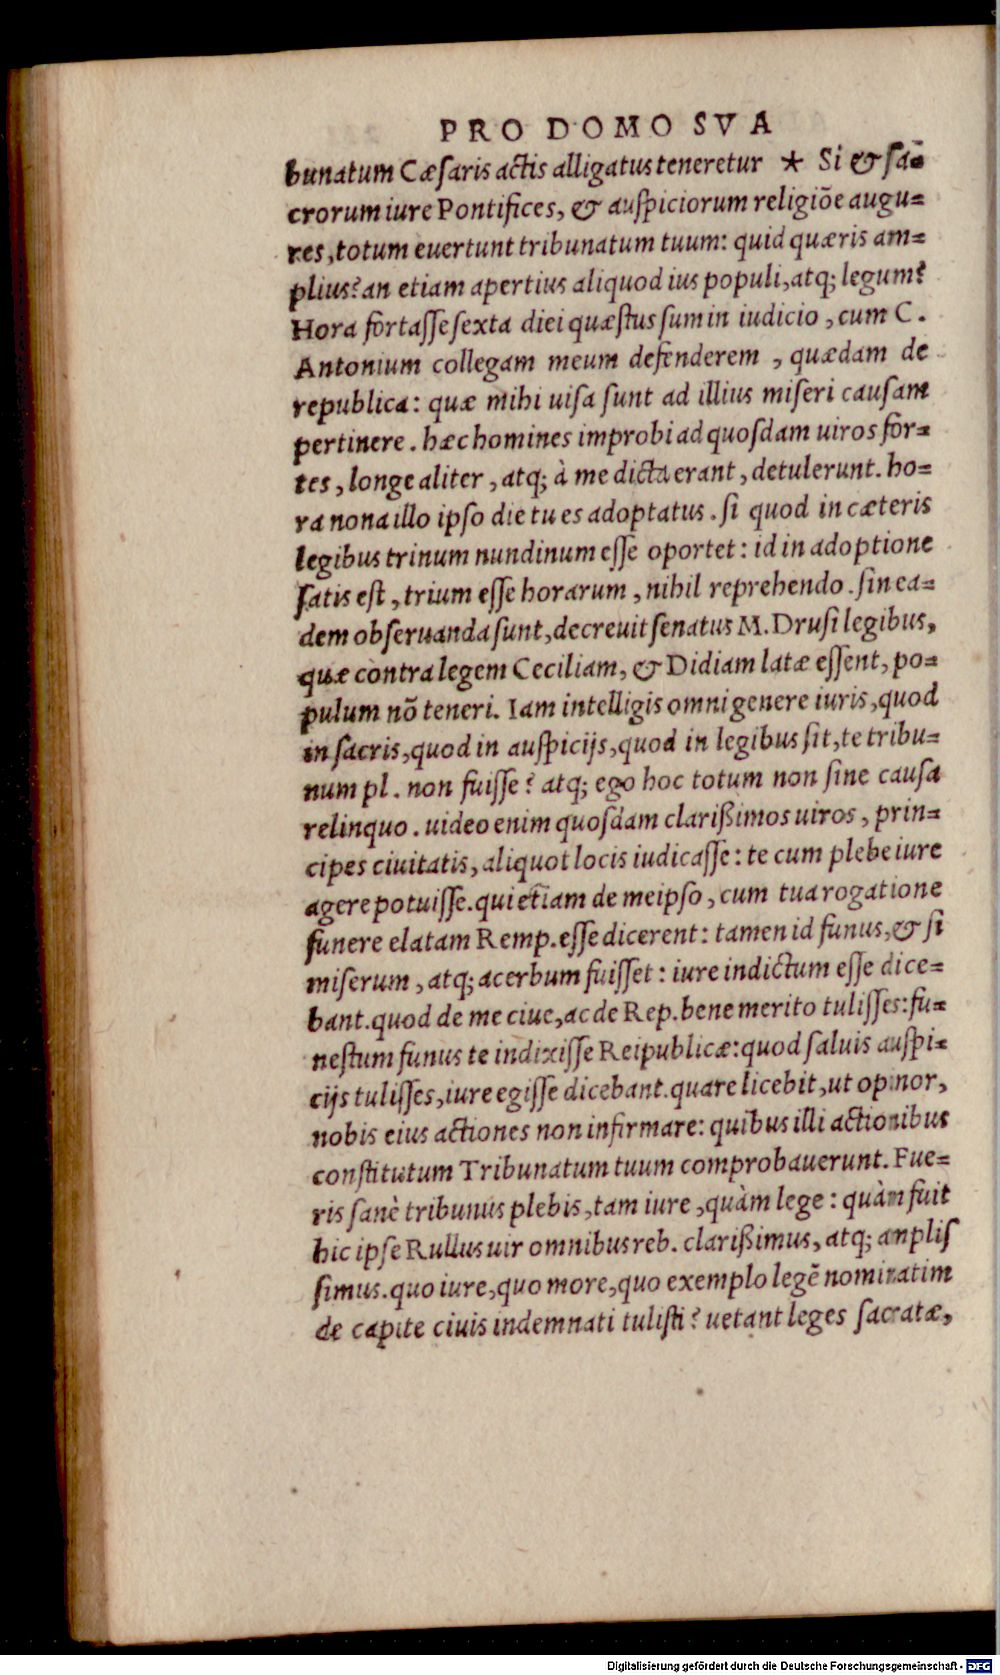 PRO DOMO SVA
bunatum Cæsaris actis alligatus teneretur ★ Si & sa=
crorum iure Pontifices, & auspiciorum religiõe augu=
res, totum euertunt tribunatum tuum: quid quæris am=
plius? an etiam apertius aliquod ius populi, atq; legum?
Hora fortasse sexta diei quæstus sum in iudicio, cum C.
Antonium collegam meum defenderem, quædam de
republica: quæ mihi uisa sunt ad illius miseri causam
pertinere. hæc homines improbi ad quosdam uiros for=
tes, longe aliter, atq; à me dicta erant, detulerunt. ho=
ra nona illo ipso die tu es adoptatus. si quod in cæteris
legibus trinum nundinum esse oportet: id in adoptione
satis est, trium esse horarum, nihil reprehendo. sin ea=
dem obseruanda sunt, decreuit senatus M. Drusi legibus,
quæ contra legem Ceciliam, & Didiam latæ essent, po=
pulum nõ teneri. Iam intelligis omni genere iuris, quod
in sacris, quod in auspicijs, quod in legibus sit, te tribu=
num pl. non fuisse? atq; ego hoc totum non sine causa
relinquo. uideo enim quosdam clarißimos uiros, prin=
cipes ciuitatis, aliquot locis iudicasse: te cum plebe iure
agere potuisse. qui etiam de meipso, cum tua rogatione
funere elatam Remp. esse dicerent: tamen id funus, & si
miserum, atq; acerbum fuisset: iure indictum esse dice=
bant. quod de me ciue, ac de Rep. bene merito tulisses: fu=
nestum funus te indixisse Reipublicæ: quod saluis auspi=
cijs tulisses, iure egisse dicebant. quare licebit, ut opinor,
nobis eius actiones non infirmare: quibus illi actionibus
constitutum Tribunatum tuum comprobauerunt. Fue=
ris sanè tribunus plebis, tam iure, quàm lege: quàm fuit
hic ipse Rullus uir omnibus reb. clarißimus, atq; amplis
simus. quo iure, quo more, quo exemplo legẽ nominatim
de capite ciuis indemnati tulisti? uetant leges sacratæ,
Digitalisierung gefördert durch die Deutsche Forschungsgemeinschaft - DFG